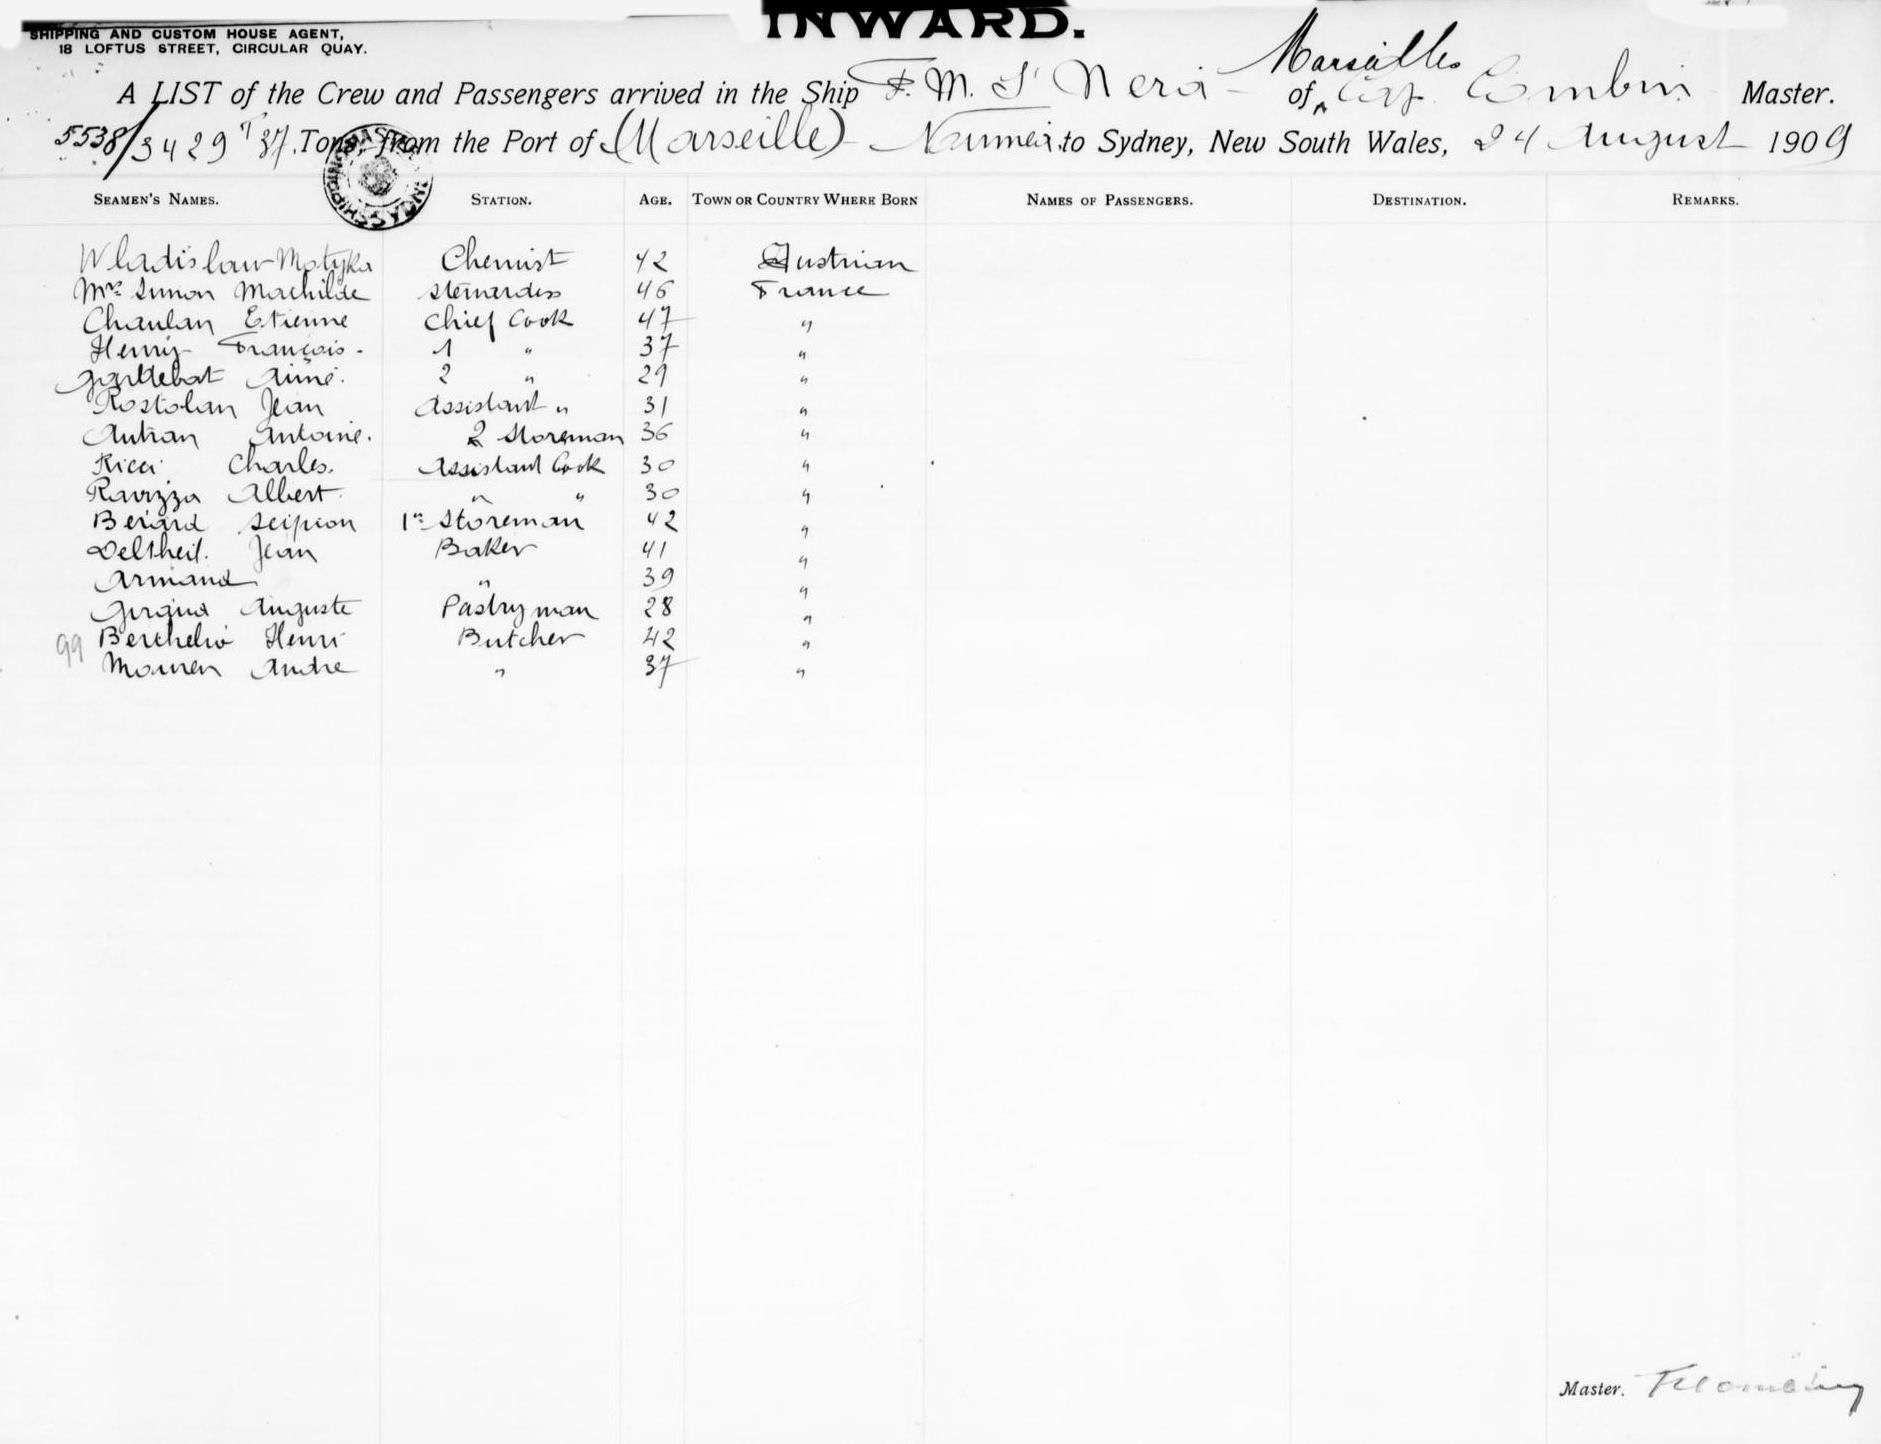 INWARD.
SHIPPING AND CUSTOM HOUSE AGENT,
18 LOFTUS STREET, CIRCULAR QUAY.
A LIST of the Crew and Passengers arrived in the Ship F. M. S Nera of Marseilles Cap Combin Master.
5538/3429 T 37 Tons, from the Port of (Marseille) Noumea to Sydney, New South Wales, 24 August 1909
SEAMEN'S NAMES. STATION. AGE. TOWN OR COUNTRY WHERE BORN NAMES OF PASSENGERS. DESTINATION. REMARKS.
Wladislaw Motyka Chemist 42 Austrian
Mrs Simon Mathilde Stewardess 46 France
Chaulan Etienne Chief Cook 47 "
Henry François. 1 " 37 "
Aimé. 2 " 29 "
Rostolan Jean Assistant " 31 "
Autran Antoine. 2 Storeman 36 "
Ricci Charles. Assistant Cook 30 "
Ravizza Albert. " " 30 "
Berard Scipion 1er Storeman 42 "
Deltheil. Jean Baker 41 "
Armand " 39 "
Giraud Auguste Pastryman 28 "
99 Henri Butcher 42 "
Mouren Andre " 37 "
Master.